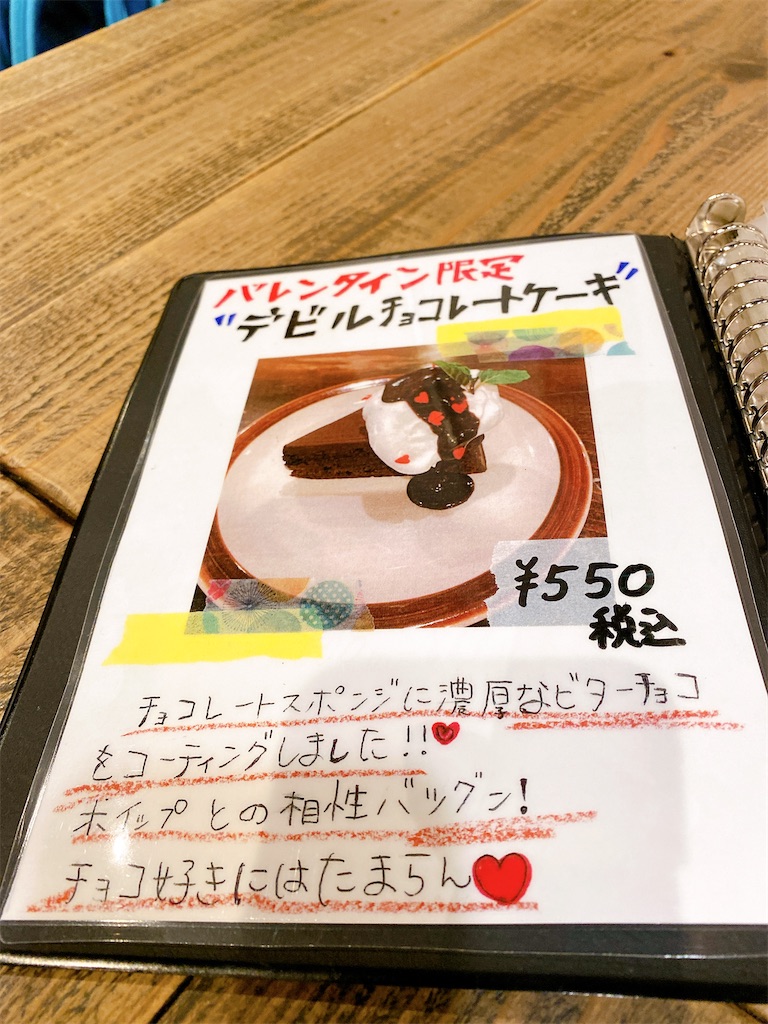 バレンタイン限定
"デビルチョコレートケーキ"
¥550
税込
チョコレートスポンジに濃厚なビターチョコ
をコーティングしました!!
ホイップとの相性バツグン!
チョコ好きにはたまらん